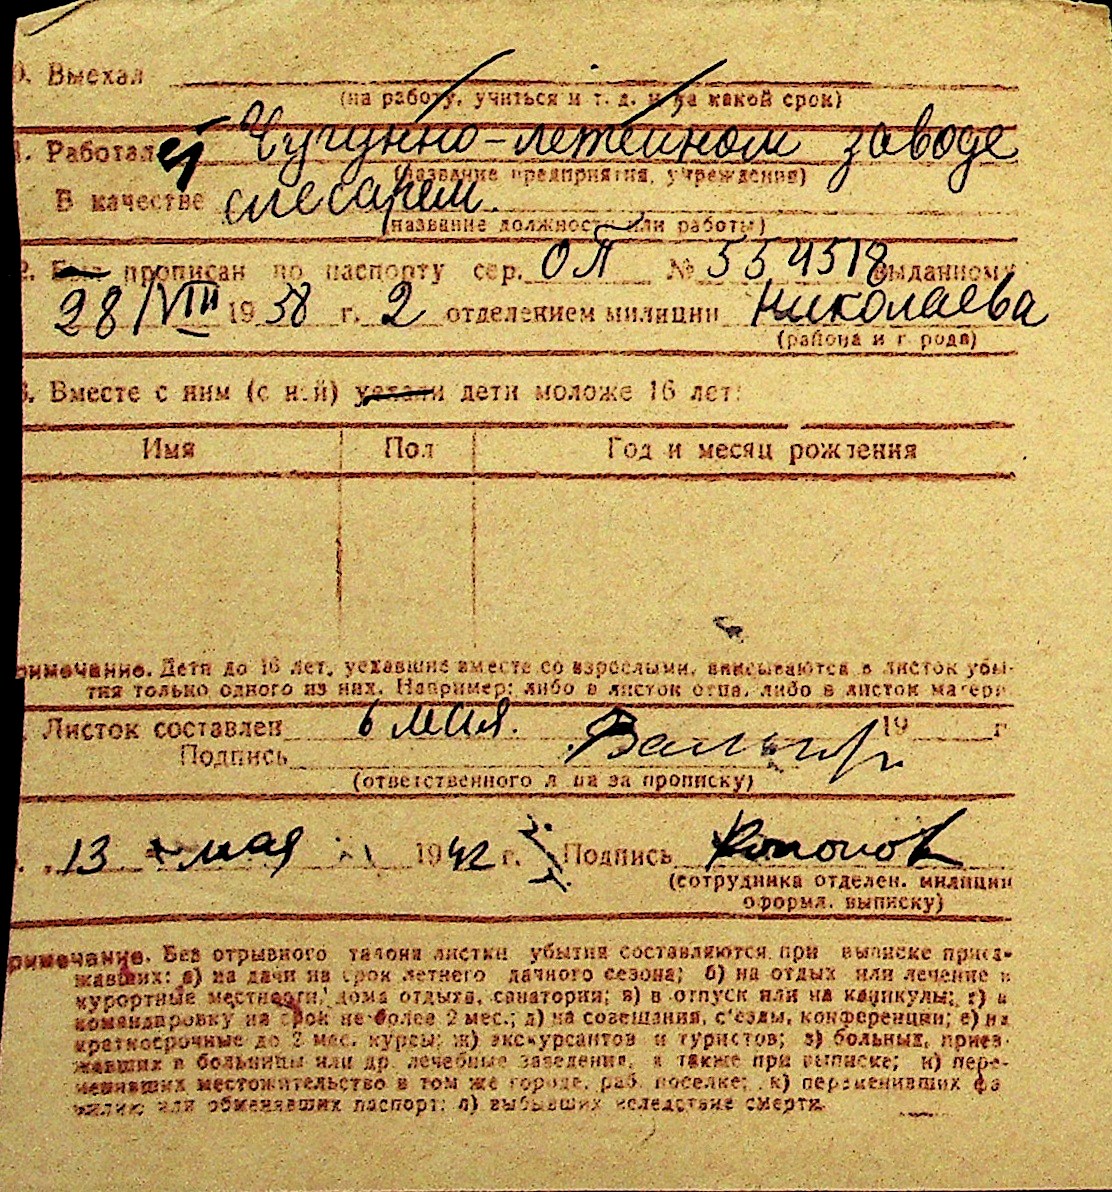 0. Выехал
(на работу, учиться и т. д. и на какой срок)
1. Работает Чугунно-литейном заводе
(название предприятия, учреждения)
В качестве слесарем.
(название должности или работы)
2. Был прописан по паспорту сер. ОЛ № 554518 выданному
28/VIII 1958 г. 2 отделением милиции Николаева
(района и города)
3. Вместе с ним (с ней) уехали дети моложе 16 лет:
Имя Пол Год и месяц рождения
римечание. Дети до 16 лет, уехавшие вместе со взрослыми, вписываются в листок убы-
тия только одного из них. Например: либо в листок отца, либо в листок матери.
Листок составлен 6 мая. 19 г
Подпись
(ответственного лица за прописку)
13 мая 1942 г. Подпись Кononов
(сотрудника отделен. милиции
оформл. выписку)
римечание. Без отрывного талона листки убытия составляются при выписке приез-
жавших: а) на дачи на срок летнего дачного сезона; б) на отдых или лечение в
курортные местности, дома отдыха, санатории; в) в отпуск или на каникулы; г) в
командировку на срок не более 2 мес.; д) на совещания, с'езды, конференции; е) на
краткосрочные до 2 мес. курсы; ж) экскурсантов и туристов; з) больных, приез-
жавших в больницы или др. лечебные заведения, а также при выписке; и) пере-
менивших местожительство в том же городе, раб. поселке; к) переменивших фа
милию или обменявших паспорт; л) выбывших вследствие смерти.